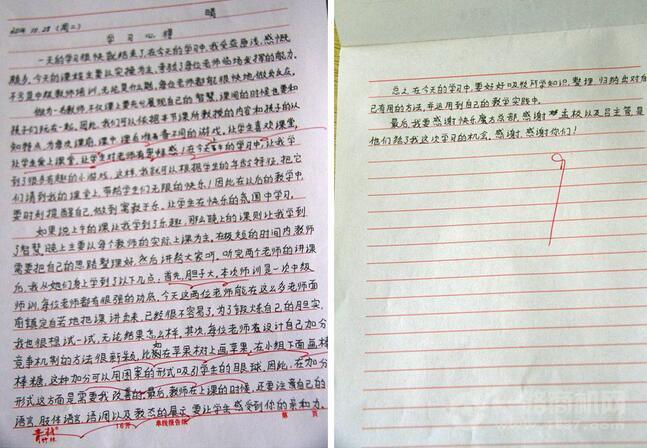 2014.10.28（周二） 晴
学习心得
一天的学习很快就结束了，在今天的学习中，我受益匪浅，感慨
颇多。今天的课程主要以实操为主，考验了每位老师临场发挥的能力。
不亏是中级教师培训，无论是什么题，每位老师都能很快地做出反应。
做为一名教师，不仅课上要充分展现自己的智慧，课间的时候也要和
孩子们玩在一起。因此，我们可以依据本节课所教授的内容和孩子的认
知特点，为每次课前、课中、课后准备不同的游戏，让学生喜欢课堂，
让学生爱上课堂，让学生对老师有黑感！在今天下午的学习中，让我学
到了很多有趣的小游戏，这样，我就可以根据学生的年龄特征，把它
们请到我的课堂上，带给学生们无限的快乐！因此在以后的教学中，
要时刻提醒自己，做到寓教于乐。让学生在快乐的氛围中学习。
如果说上午的课让我学到了乐趣，那么晚上的课则让我学到
了智慧，晚上主要以每个教师的实际上课为主。在极短的时间内，教师
需要把自己的思路整理好，然后讲给大家听。听完两个老师的讲课
后，我从她们身上学到了以下几点：首先，胆子大，本次师训是一次中级
师训，每位老师都有很强的功底，今天这两位老师能在这么多老师面
前镇定自若地把课讲出来，已经很不容易了，为了锻炼自己的胆实，
我也很想试一试，无论结果怎么样。其次，每位老师在设计自己加分
竞争机制的方法很新颖，比如在苹果树上画苹果，在小组下面画棒
棒糖，这种加分可以用图案的形式吸引学生的眼球，因此，在加分
形式这方面是需要我改善的，最后，教师在上课的时候，还要注意自己的
语言，肢体语言，语调以及教态的展示，要让学生感受到你的亲和力。
16开 单线报告纸 第 页
总之，在今天的学习中，要好好吸收所学知识，整理、归纳出对自
己有用的方法，并运用到自己的教学实践中。
最后，我要感谢快乐魔方总部，感谢孟校以及吕主管，是
他们给了我这次学习的机会。感谢，感谢你们！